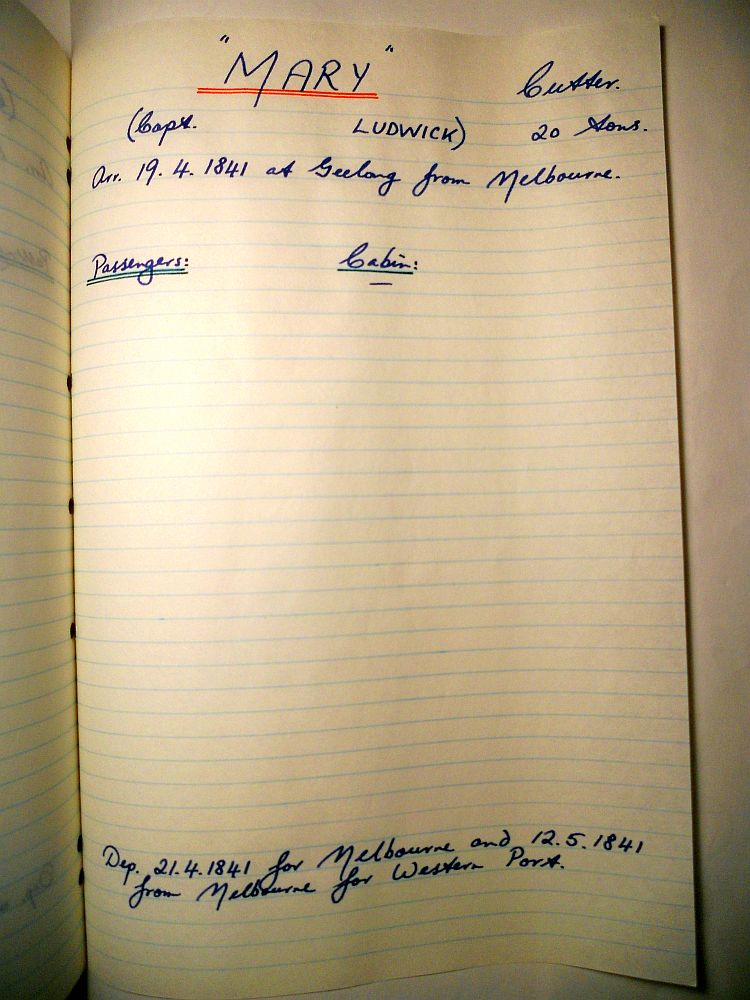 "MARY" Cutter.
(Capt. LUDWICK) 20 tons.
Arr. 19.4.1841 at Geelong from Melbourne.
Passengers: Cabin:
—
Dep. 21.4.1841 for Melbourne and 12.5.1841
from Melbourne for Western Port.